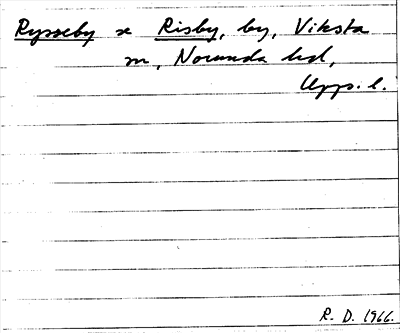 Rysseby x Risby, by, Viksta
sn, Norunda hd,
Upps. l.
R. D. 1966.